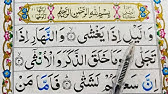 بِسْمِ اللهِ الرَّحْمٰنِ الرَّحِيْمِ
وَالَّيْلِ اِذَا يَغْشٰىۙ وَالنَّهَارِ اِذَا
تَجَلّٰىۙ وَمَا خَلَقَ الذَّكَرَ وَالْاُنْثٰىۙ
اِنَّ سَعْيَكُمْ لَشَتّٰىؕ فَاَمَّا مَنْ